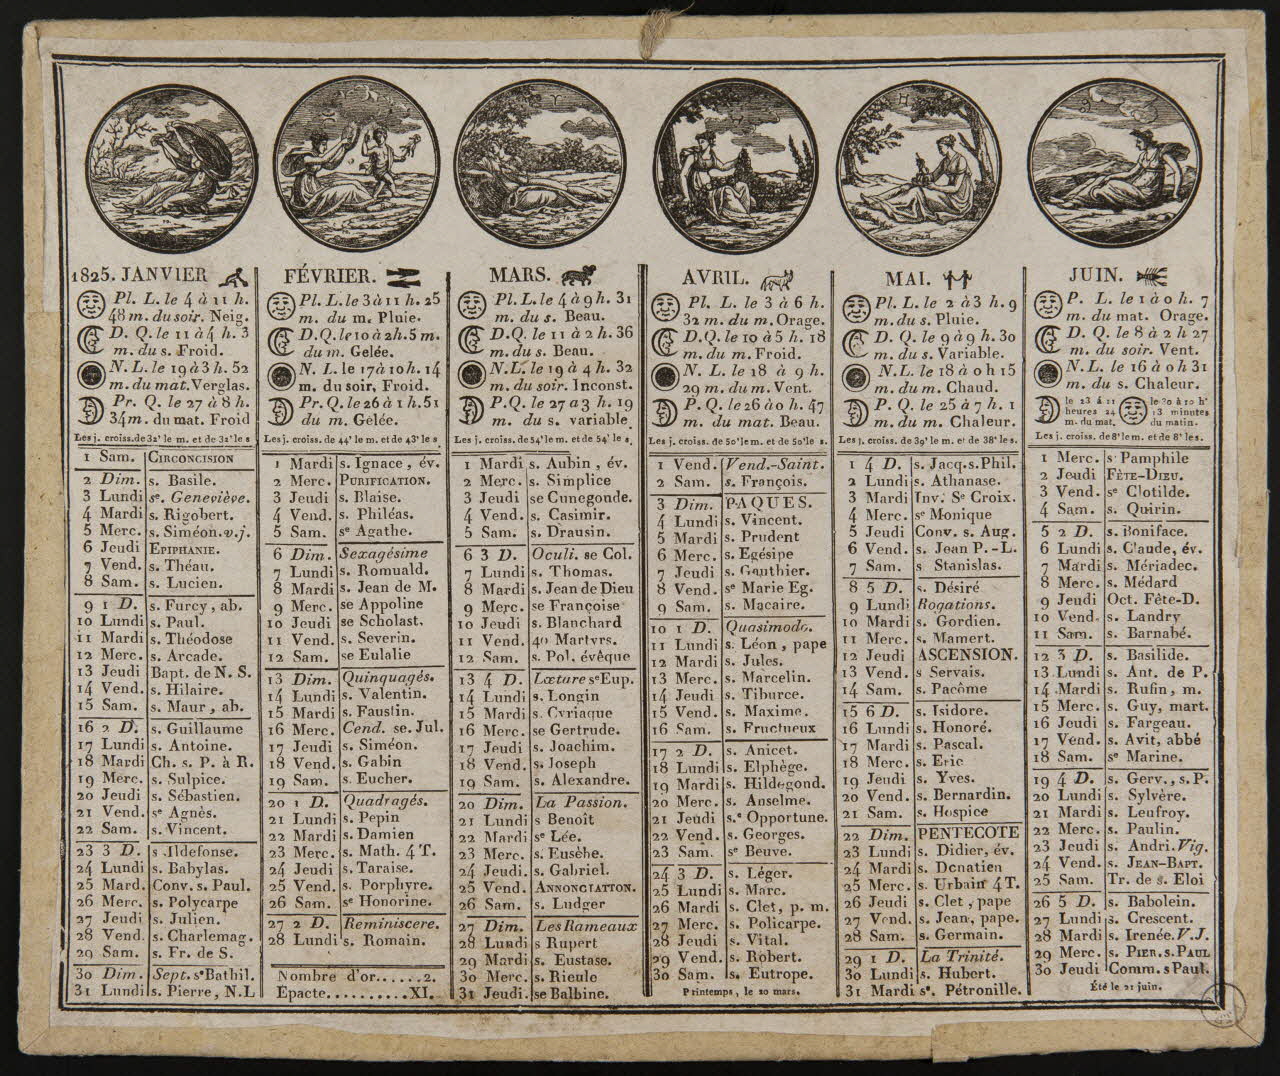 1825. JANVIER
Pl. L. le 4 à 11 h.
48 m. du soir. Neig.
D. Q. le 11 à 4 h. 3
m. du s. Froid.
N. L. le 19 à 3 h. 52
m. du mat. Verglas.
Pr. Q. le 27 à 8 h.
34 m. du mat. Froid
Les j. croiss. de 32' le m. et de 32' le s
1 Sam. CIRCONCISION
2 Dim. s. Basile.
3 Lundi se. Geneviève.
4 Mardi s. Rigobert.
5 Merc. s. Siméon. v. j.
6 Jeudi EPIPHANIE.
7 Vend. s. Théau.
8 Sam. s. Lucien.
9 1 D. s. Furcy, ab.
10 Lundi s. Paul.
11 Mardi s. Théodose
12 Merc. s. Arcade.
13 Jeudi Bapt. de N. S.
14 Vend. s. Hilaire.
15 Sam. s. Maur, ab.
16 2 D. s. Guillaume
17 Lundi s. Antoine.
18 Mardi Ch. s. P. à R.
19 Merc. s. Sulpice.
20 Jeudi s. Sébastien.
21 Vend. se Agnès.
22 Sam. s. Vincent.
23 3 D. s. Ildefonse.
24 Lundi s. Babylas.
25 Mard. Conv. s. Paul.
26 Merc. s. Polycarpe
27 Jeudi s. Julien.
28 Vend. s. Charlemag.
29 Sam. s. Fr. de S.
30 Dim. Sept. se Bathil.
31 Lundi s. Pierre, N.L
FÉVRIER.
Pl. L. le 3 à 11 h. 25
m. du m. Pluie.
D. Q. le 10 à 2h. 5 m.
du m. Gelée.
N. L. le 17 à 10 h. 14
m. du soir, Froid.
Pr. Q. le 26 à 1 h. 51
du m. Gelée.
Les j. croiss. de 44' le m. et de 43' le s
1 Mardi s. Ignace, év.
2 Merc. PURIFICATION.
3 Jeudi s. Blaise.
4 Vend. s. Philéas.
5 Sam. se Agathe.
6 Dim. Sexagésime
7 Lundi s. Romuald.
8 Mardi s. Jean de M.
9 Merc. se Appoline
10 Jeudi se Scholast.
11 Vend. s. Severin.
12 Sam. se Eulalie
13 Dim. Quinquagés.
14 Lundi s. Valentin.
15 Mardi s. Faustin.
16 Merc. Cend. se. Jul.
17 Jeudi s. Siméon.
18 Vend. s. Gabin
19 Sam. s. Eucher.
20 1 D. Quadragés.
21 Lundi s. Pepin
22 Mardi s. Damien
23 Merc. s. Math. 4 T.
24 Jeudi s. Taraise.
25 Vend. s. Porphyre.
26 Sam. se Honorine.
27 2 D. Reminiscere.
28 Lundi s. Romain.
Nombre d'or......2.
Epacte..........XI.
MARS.
Pl. L. le 4 à 9 h. 31
m. du s. Beau.
D. Q. le 11 à 2 h. 36
m. du s. Beau.
N. L. le 19 à 4 h. 32
m. du soir. Inconst.
P. Q. le 27 a 3 h. 19
m. du s. variable
Les j. croiss. de 54' le m. et de 54' le s,
1 Mardi s. Aubin, év.
2 Merc. s. Simplice
3 Jeudi se Cunegonde.
4 Vend. s. Casimir.
5 Sam. s. Drausin.
6 3 D. Oculi. se Col.
7 Lundi s. Thomas.
8 Mardi s. Jean de Dieu
9 Merc. se Françoise
10 Jeudi s. Blanchard
11 Vend. 40 Martyrs.
12 Sam. s. Pol. évêque
13 4 D. Lætare se Eup.
14 Lundi s. Longin
15 Mardi s. Cyriaque
16 Merc. se Gertrude.
17 Jeudi s. Joachim.
18 Vend. s. Joseph
19 Sam. s. Alexandre.
20 Dim. La Passion.
21 Lundi s Benoît
22 Mardi se Lée.
23 Merc. s. Eusèbe.
24 Jeudi. s. Gabriel.
25 Vend. ANNONCIATION.
26 Sam. s. Ludger
27 Dim. Les Rameaux
28 Lundi s Rupert
29 Mardi s. Eustase.
30 Merc. s. Rieule
31 Jeudi. se Balbine.
AVRIL.
Pl. L. le 3 à 6 h.
32 m. du m. Orage.
D. Q. le 10 à 5 h. 18
m. du m. Froid.
N. L. le 18 à 9 h.
29 m. du m. Vent.
P. Q. le 26 à 0 h. 47
m. du mat. Beau.
Les j. croiss. de 50' le m. et de 50' le s.
1 Vend. Vend.-Saint.
2 Sam. s. François.
3 Dim. PAQUES.
4 Lundi s. Vincent.
5 Mardi s. Prudent
6 Merc. s. Egésipe
7 Jeudi s. Gauthier.
8 Vend. se Marie Eg.
9 Sam. s. Macaire.
10 1 D. Quasimodo.
11 Lundi s. Léon, pape
12 Mardi s. Jules.
13 Merc. s. Marcelin.
14 Jeudi s. Tiburce.
15 Vend. s. Maxime.
16 Sam. s. Fructueux
17 2 D. s. Anicet.
18 Lundi s. Elphège.
19 Mardi s. Hildegond.
20 Merc. s. Anselme.
21 Jeudi s.e Opportune.
22 Vend. s. Georges.
23 Sam. se Beuve.
24 3 D. s. Léger.
25 Lundi s. Marc.
26 Mardi s. Clet, p. m.
27 Merc. s. Policarpe.
28 Jeudi s. Vital.
29 Vend. s. Robert.
30 Sam. s. Eutrope.
Printemps, le 20 mars.
MAI.
Pl. L. le 2 à 3 h. 9
m. du s. Pluie.
D. Q. le 9 à 9 h. 30
m. du s. Variable.
N. L. le 18 à 0 h 15
m. du m. Chaud.
P. Q. le 25 à 7 h. 1
m. du m. Chaleur.
Les j. croiss. de 39' le m. et de 38' le s.
1 4 D. s. Jacq. s. Phil.
2 Lundi s. Athanase.
3 Mardi Inv. Se Croix.
4 Merc. se Monique
5 Jeudi Conv. s. Aug.
6 Vend. s. Jean P.-L.
7 Sam. s Stanislas.
8 5 D. s. Désiré
9 Lundi Rogations.
10 Mardi s. Gordien.
11 Merc. s. Mamert.
12 Jeudi ASCENSION.
13 Vend. s Servais.
14 Sam. s. Pacôme
15 6 D. s. Isidore.
16 Lundi s. Honoré.
17 Mardi s. Pascal.
18 Merc. s. Eric
19 Jeudi s. Yves.
20 Vend. s. Bernardin.
21 Sam. s. Hospice
22 Dim. PENTECOTE
23 Lundi s. Didier, év.
24 Mardi s. Donatien
25 Merc. s. Urbain 4 T.
26 Jeudi s. Clet, pape
27 Vend. s. Jean, pape.
28 Sam. s. Germain.
29 1 D. La Trinité.
30 Lundi s. Hubert.
31 Mardi se. Pétronille.
JUIN.
P. L. le 1 à 0 h. 7
m. du mat. Orage.
D. Q. le 8 à 2 h 27
m. du soir. Vent.
N. L. le 16 à 0 h 31
m. du s. Chaleur.
le 23 à 11
heures 24
m. du mat.
le 30 à 10 h'
13 minutes
du matin.
Les j. croiss. de 8' le m. et de 8' le s.
1 Merc. s. Pamphile
2 Jeudi FÊTE-DIEU.
3 Vend. se Clotilde.
4 Sam. s. Quirin.
5 2 D. s. Boniface.
6 Lundi s. Claude, év.
7 Mardi s. Mériadec.
8 Merc. s. Médard
9 Jeudi Oct. Fête-D.
10 Vend. s. Landry
11 Sam. s. Barnabé.
12 3 D. s. Basilide.
13 Lundi s. Ant. de P.
14 Mardi s. Rufin, m.
15 Merc. s. Guy, mart.
16 Jeudi s. Fargeau.
17 Vend. s. Avit, abbé
18 Sam. se Marine.
19 4 D. s. Gerv., s. P.
20 Lundi s. Sylvère.
21 Mardi s. Leufroy.
22 Merc. s. Paulin.
23 Jeudi s. Andri. Vig.
24 Vend. s. JEAN-BAPT.
25 Sam. Tr. de s. Eloi
26 5 D. s. Babolein.
27 Lundi s. Crescent.
28 Mardi s. Irenée. V.J.
29 Merc. s. PIER. s. PAUL
30 Jeudi Comm. s Paul.
Été le 21 juin.